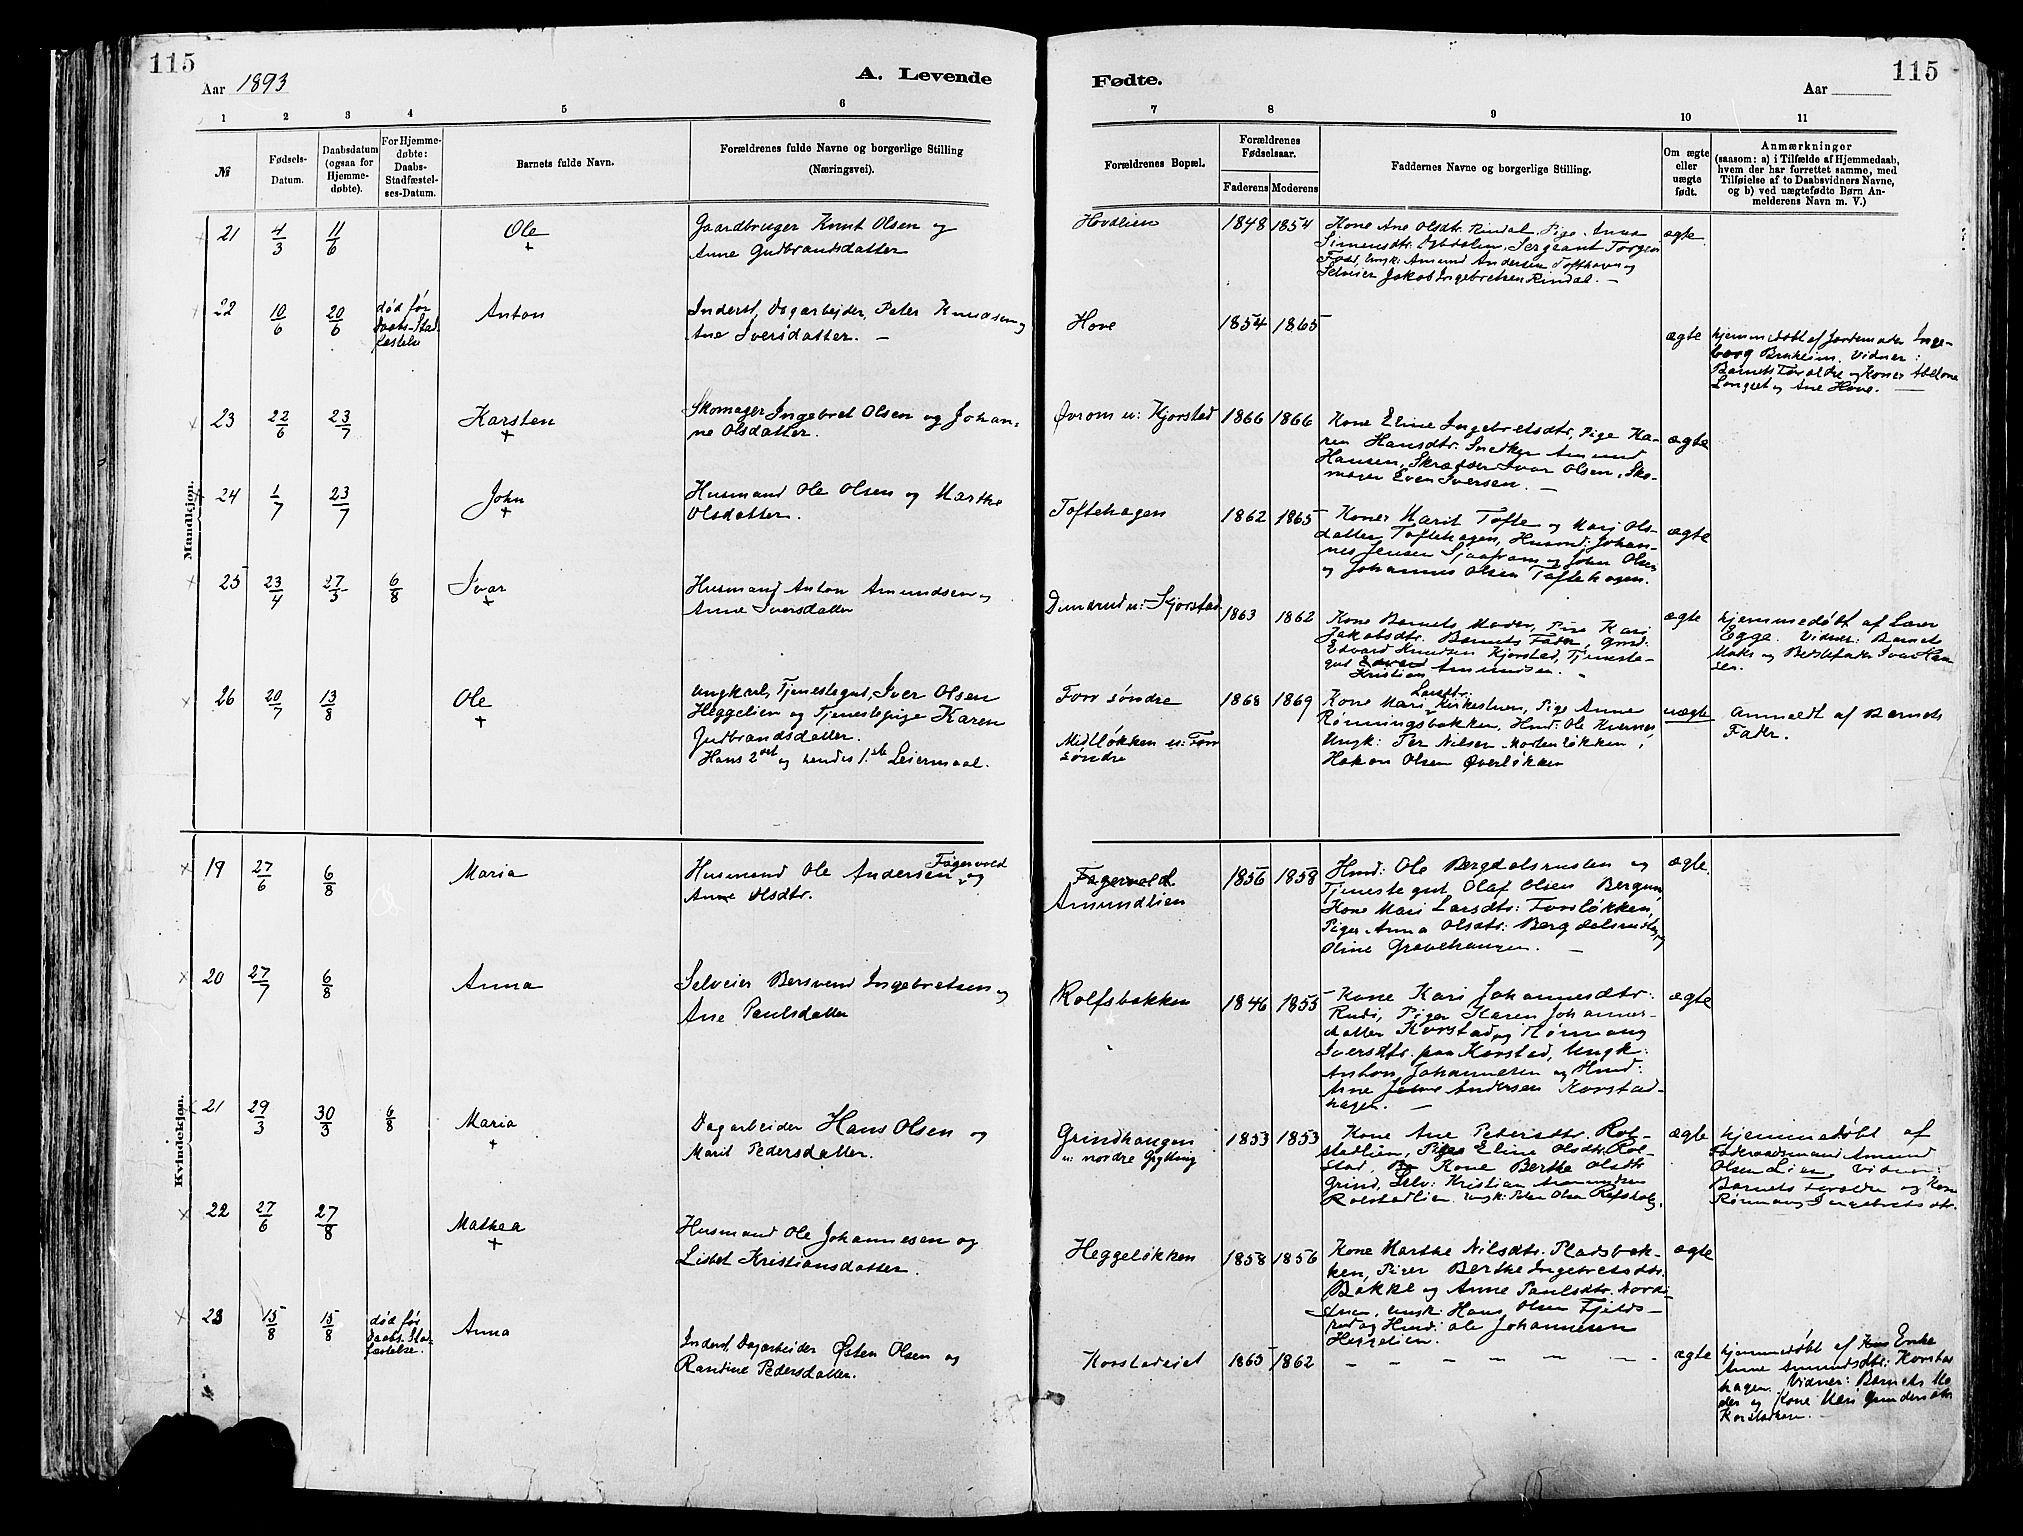 115
Aar 1893
A. Levende
Fødte.
Aar
115
1 2 3 4 5 6 7 8 9 10 11
№
Fødsels-
Datum.
Daabsdatum
(ogsaa for
Hjemme-
døbte).
For Hjemme-
døbte:
Daabs-
Stadfæstel-
ses-Datum.
Barnets fulde Navn.
Forældrenes fulde Navne og borgerlige Stilling
(Næringsvei).
Forældrenes Bopæl.
Forældrenes
Fødselsaar.
Faderens Moderens
Faddernes Navne og borgerlige Stilling.
Om ægte
eller
uægte
født.
Anmærkninger
(saasom: a) i Tilfælde af Hjemmedaab,
hvem der har forrettet samme, med
Tilføielse af to Daabsvidners Navne,
og b) ved uægtefødte Børn An-
melderens Navn m. V.)
Mandkjøn.
21 4/3 11/6 Ole
Gaardbruger Knut Olsen og
Anne Gudbrandsdatter
Hovdlien 1848 1854
Kone Ane Olsdtr. Rindal, Pige Anna
Simensdtr. Sergeant Torgeir
Amund Andersen Tofthavn og
Selveier Jakob Ingebretsen Rindal. —
ægte
22 10/6 20/6
død før
Daabs-Stad-
fæstelse
Anton
Inderst, Dagarbejder, Peter Knudsen og
Ane Iversdatter. —
Hove 1854 1865
ægte
hjemmedøbt af Jordemoder Inge-
borg Bruheim. Vidner:
Barnets Forældre og Koner
og Ane Hove. —
23 22/6 23/7 Karsten
Skomager Ingebret Olsen og Johan-
ne Olsdatter.
Øvrom u: Kjorstad 1866 1866
Kone Eline Ingebretsdtr, Pige Ka-
ren Hansdtr. Snedker Amund
Hansen, Skrædder Ivar Olsen, Sko-
mager Even Iversen. —
ægte
24 1/7 23/7 John
Husmand Ole Olsen og Marthe
Olsdatter.
Toftehagen 1862 1865
Koner Marit Tofte og Mari Ols-
datter Toftehagen, Husmd: Johan-
nes Jensen og John Olsen
og Johannes Olsen Toftehagen.
ægte
25 23/4 27/5 6/8 Ivar
Husmand Anton Amundsen og
Anne Iversdatter
u: Kjorstad 1863 1862
Kone Barnets Moder, Pige Kari
Jakobsdtr. Barnets Fader, Grd:
Edvard Knudsen Kjorstad, Tjeneste-
gut Kristian Amundsen.
ægte
hjemmedøbt af Lærer
Egge. Vidner: Barnets
Moder og Bedstefader Ivar Han-
sen.
26 20/7 13/8 Ole
Ungkarl, Tjenestegut, Iver Olsen
Heggelien og Tjenestepige Karen
Gudbrandsdatter.
Hans 2det og hendes 1.ste Leiermaal.
Forr søndre
Midtløkken u: Forr
søndre
1868 1869
Kone Mari Larsdtr: Kirkestuen, Pige Anne
Rønningsbakken, Hmd: Ole Kvernes,
Ungk: Per Nilsen Mortenløkken,
Hakon Olsen Øverløkken
uægte
Anmeldt af Barnets
Fader.
Kvindekjøn.
19 27/6 6/8 Maria
Husmand Ole Andersen Fagervold og
Anne Olsdtr.
Fagervold
Amundlien
1856 1858
Hmd: Ole Bergdalsrusten og
Tjenestegut Olaf Olsen Bergum,
Kone Mari Larsdtr: Forrløkken,
Piger Anna Olsdtr: Bergdalsrusten og
Oline Gravehaugen. —
ægte
20 27/7 6/8 Anna
Selveier Bersvend Ingebretsen og
Ane Paulsdatter
Rolfsbakken 1846 1855
Kone Kari Johannesdtr:
Rudi, Piger Karen Johannes-
datter Korstad og Rønnaug
Iversdtr. paa Korstad, Ungk:
Anton Johannesen og Hmd:
Andersen Korstad-
hagen. —
ægte
21 29/3 30/3 6/8 Maria
Dagarbeider Hans Olsen og
Marit Pedersdatter.
Grindhaugen
u: nordre Grytting
1853 1853
Kone Ane Petersdtr. Rol-
stadlien, Pige Eline Olsdtr. Rol-
stad, Kone Berthe Olsdtr
Grind, Selv: Kristian Amundsen
Rolstadlien. Ungk: Peter Olsen
ægte
hjemmedøbt af
Amund
Olsen Lien. Vidner:
Barnets Forældre og Kone
Rønnaug Ingebretsdtr.
22 27/6 27/8 Mathea
Husmand Ole Johannesen og
Lisbet Kristiansdatter.
Heggeløkken 1858 1856
Kone Marthe Nilsdtr. Pladsbak-
ken, Piger Berthe Ingebretsdtr.
Bakke og Anne Paulsdtr.
Ungk: Hans Olsen
og Hmd: Ole Johannesen
Heggelien.
ægte
23 15/8 15/8
død før
Daabs-Stad-
fæstelse.
Anna
Inderst, Dagarbeider Østen Olsen og
Randine Pedersdatter.
Korstadeiet 1865 1862
— — — — — — —
ægte
hjemmedøbt af Enke
Anne Amundsdtr: Korstad-
hagen. Vidner: Barnets Mo-
der og Kone Mari